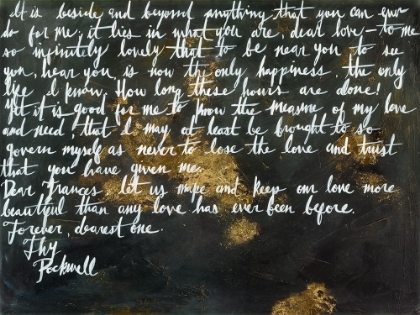 It is beside and beyond anything that you can ever
do for me; it lies in what you are, dear love – to me
so infinitely lovely that to be near you, to see
you, hear you, is now the only happiness, the only
life, I know. How long these hours are alone!
Yet it is good for me to know the measure of my love
and need, that I may at least be brought to so
govern myself as never to lose the love and trust
that you have given me.
Dear Frances, let us make and keep our love more
beautiful than any love has ever been before.
Forever, dearest one.
Thy
Rockwell